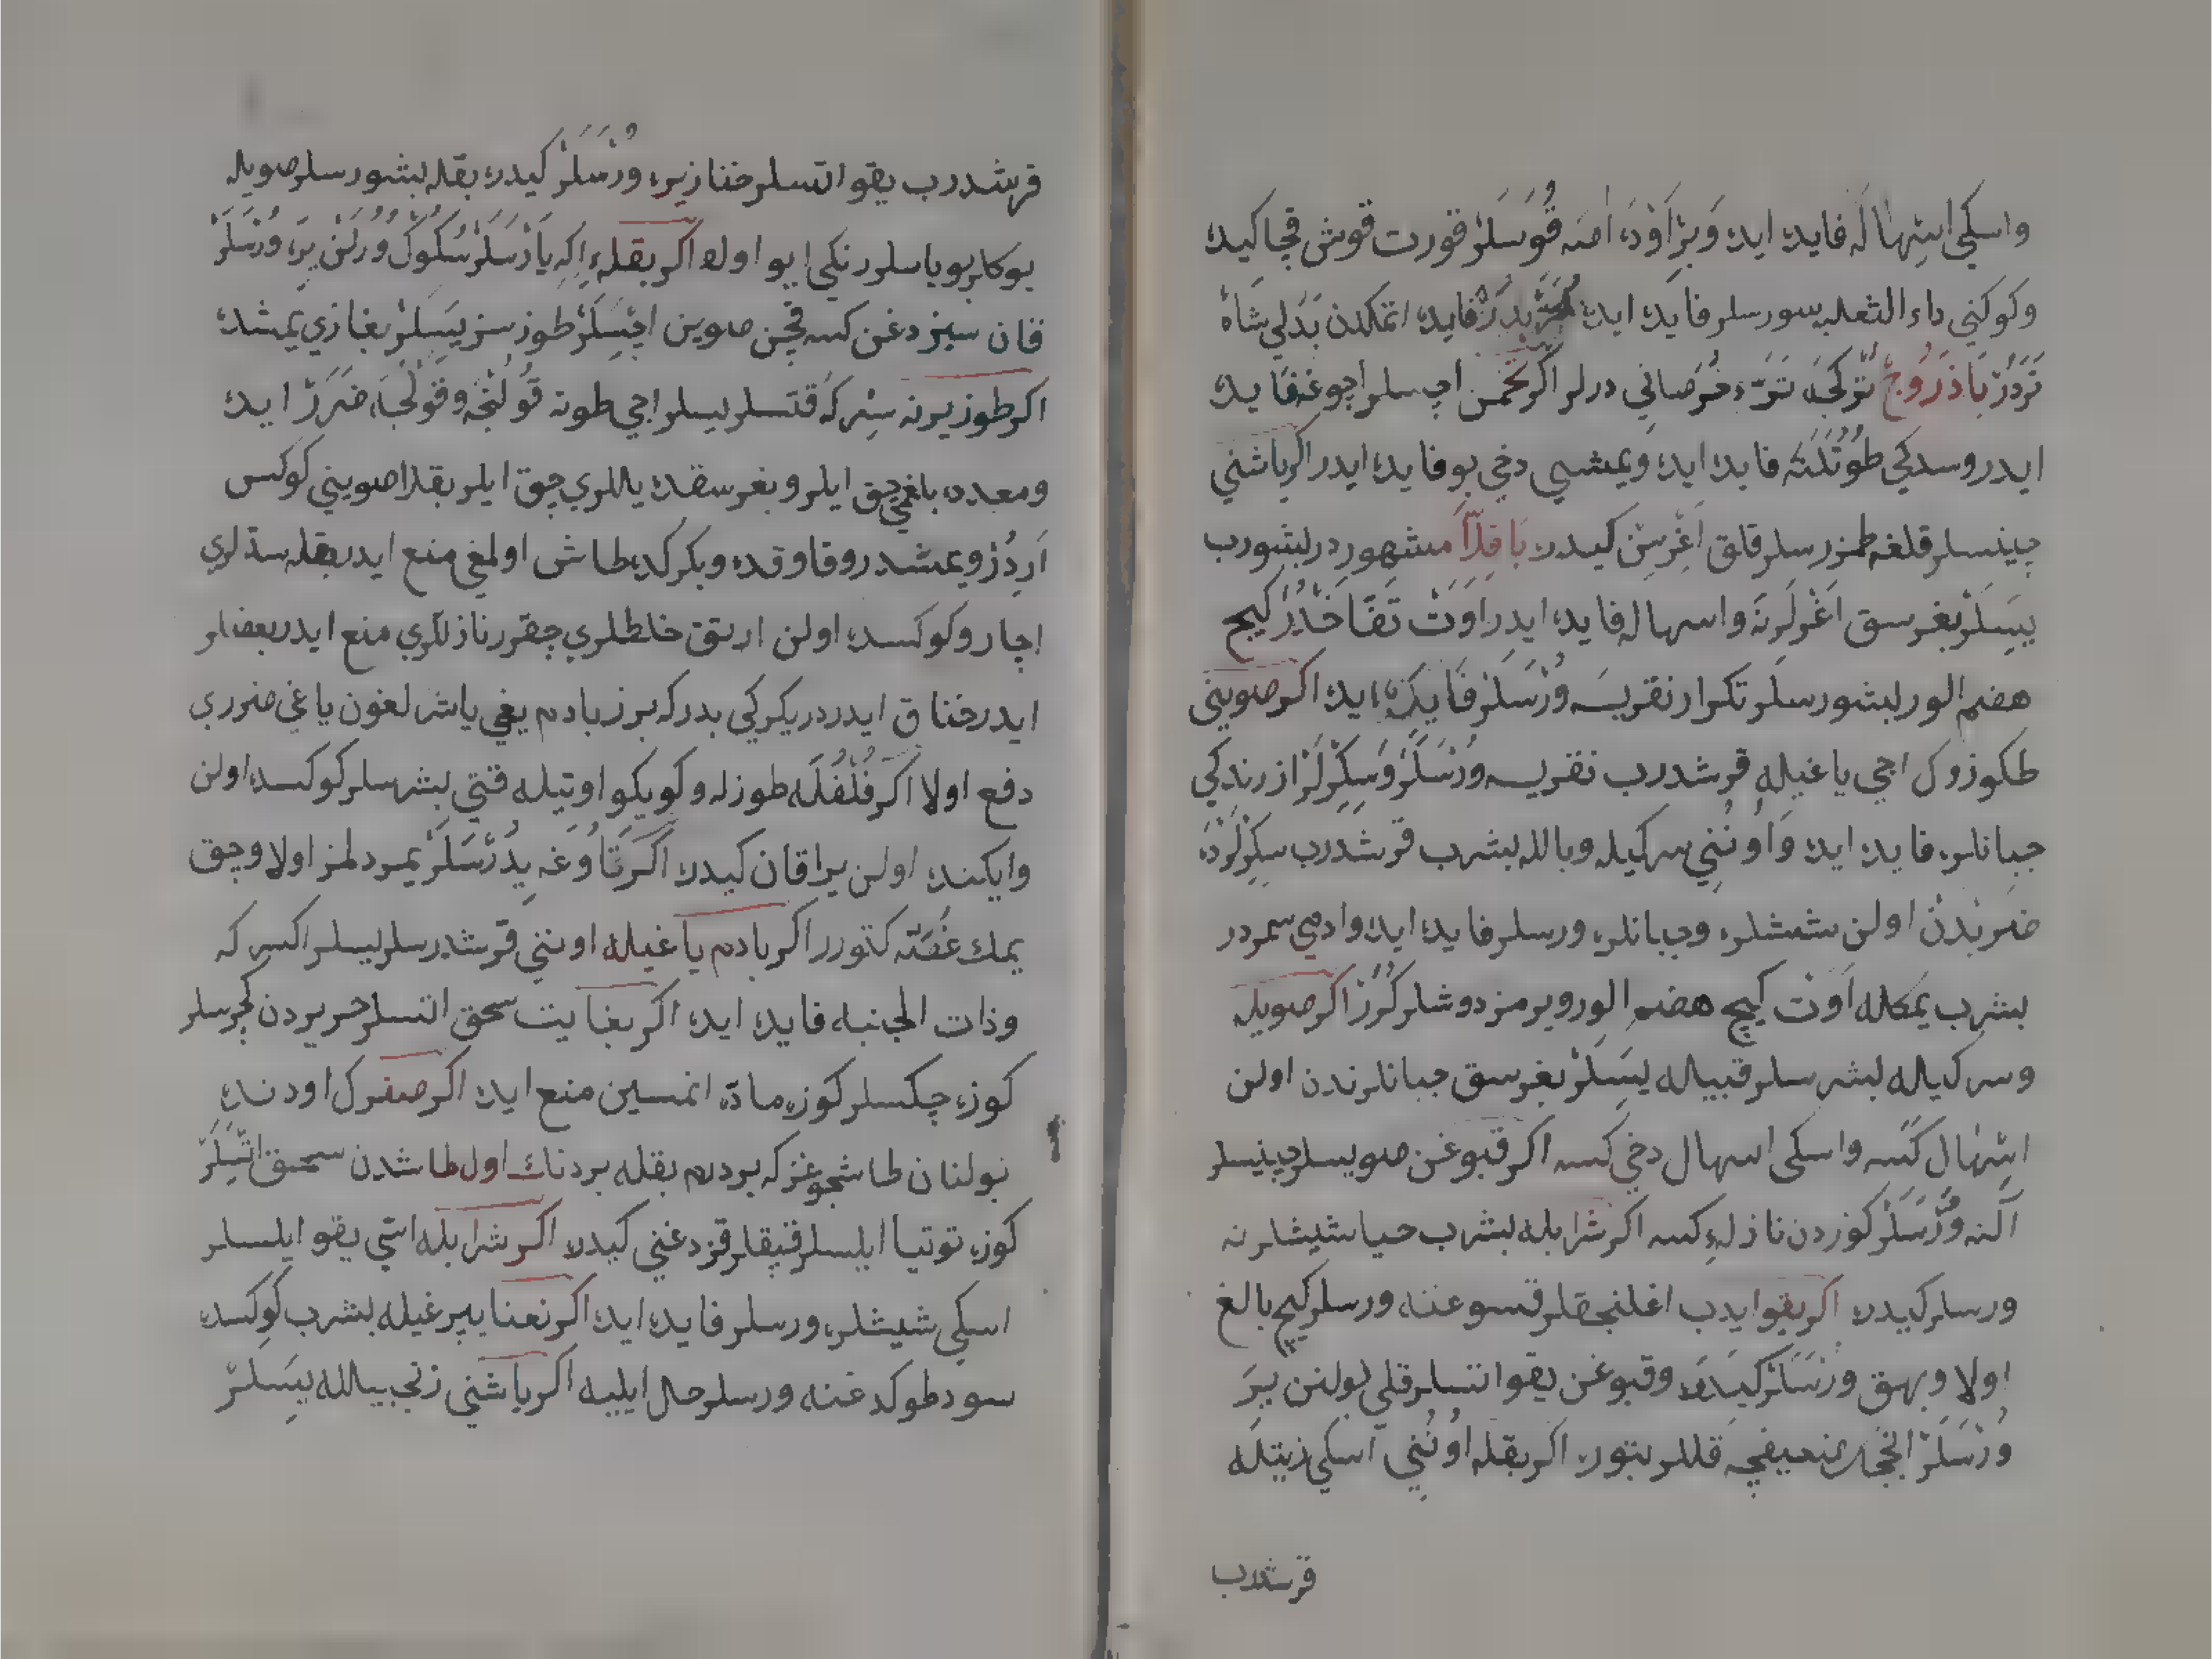 واسكي اسهاله فايده ايده وَبِرْ اَوْدَه اصه قُوسَلَرْ قورت قوش قچا كيده
وكوكني داء الثعلبه سورسلر فايده ايده فايده اتمكدن بَدَلي شَاهْ
تَرَدُرْ بَاذَرُوجْ تُركجَه تَرَه خُرَصاني درلر اكر تخمن اچسلر اچوغنه فايده
ايدر وسدكي طوتُلَنَه فايده ايده ويمشي دخي بو فايده ايدر اكر ياشني
چينسلر قلغه طمزرسلر قلق اَغْرِسِن كيدره بَاقِلَّا مشهور در بشورب
ييسَلَرْ بغرسق اَغْرلَرنَه واسهاله فايده ايدر اَوَتْ تَفَّاخدُرْ كيج
هضم الور بشورسلر تكرار نقريسه وُرْسَلَرْ فايده ايده اكر صويني
طكوز وك اچي ياغيله قرشدرب نقريسه وُرْسَلَرْ وَسِكِرْلَرْ ازرندكي
چبانلره فايده ايده وَاُونُني سركيله وبالله بشرب قرشدرب سكِرْلَرْدَه
ضربدن اولن ششلره وچبانلره ورسلر فايده ايده وادمي سمردر
بشرب يمكله اَوَت كيج هضم الور ويرمز دوشلر كُرُرْ اكر صويله
وسركياله بشرسلر قبياله ييسَلَرْ بغرسق چبانلرندن اولن
اسهال كسه واسكي اسهال دخي كسه اكر قبوغن صويسلر چينسلر
النه وُرْسَلَرْ كوزدن نازله كسه اكر شرابله بشرب حيا شيشلرنه
ورسلر كيدره اكر يقو ايدب اغلنجقلر قسوغنه ورسلر كيج بالغ
اولا وبهق وُرْسَلَرْ كيدَره وقبوغن يقو اتسلر قلي يولنن يرَ
وُرْسَلَرْ انجه ضعيفچه قللر بتوره اكر بقله اُونُني اسكي زيتله
قرشدرب
قرشدرب يقو اتسلر خنازيره وُرْسَلَرْ كيدره بقله بشورسلر صويله
يوكلر بوياسلر رنكي ايو اولا اكر بقله اِكِه يَارْسَلَرْ سُلُوك وُرُلَنْ يرَه وُرْسَلَرْ
قان سيزدغن كسه قچن صوين اچسَلَرْ طوزسز ييسَلَرْ بغازي يمشده
اكر طوز يرنه سركه قتسلر ييسلر اچي طوته قُولُنجه وقَولُنجَه ضَرَرْ ايده
ومعدده باغمي چق ايلر وبغرسقده ياللري چق ايلر بقلا صويني كوكس
اَرِدُرْ ويمشدر وقاوقده وبكركده طاش اولمغي منع ايدر بقله سدلري
اچار وكوكسده اولن ارتق خلطلري چقرر نازللري منع ايدر بعضلر
ايدر خناق ايدر دريكركي بدر كه برز بادم يغي ياشلغون ياغي ضرري
دفع اولا اكر فُلْفُلَه طوزله وكويكو اوتيله قتي بشرسلر كوكسده اولن
وايكنده اولن يراقان كيدره اكر تَاوُغَه يِدُرْسَلَرْ يمرد لمز اولا وچق
يمك غُصَّه كتورر اكر بادم ياغيله اونني قرشدرسلر ييسلر اكسركه
وذات الجنبه فايده ايده اكر بغايت سحق اتسلر حريردن كچرسلر
كوزه چكسلر كوزه مادّه انمسين منع ايده اكر صغرك اودنده
بولنان طاشجوغز كه بردرم بقله بردنك اول طاشدن سحق اتسَلَرْ
كوزه توتيا ايلسلر قپقلر قزدغني كيدره اكر شرابله استي يقو ايلسلر
اسكي شيشلره ورسلر فايده ايده اكر نعنا يپرغيله بشرب كوكسده
سود طوكدغنه ورسلر حال ايليه اكر ياشني زنجبيالله ييسَلَرْ